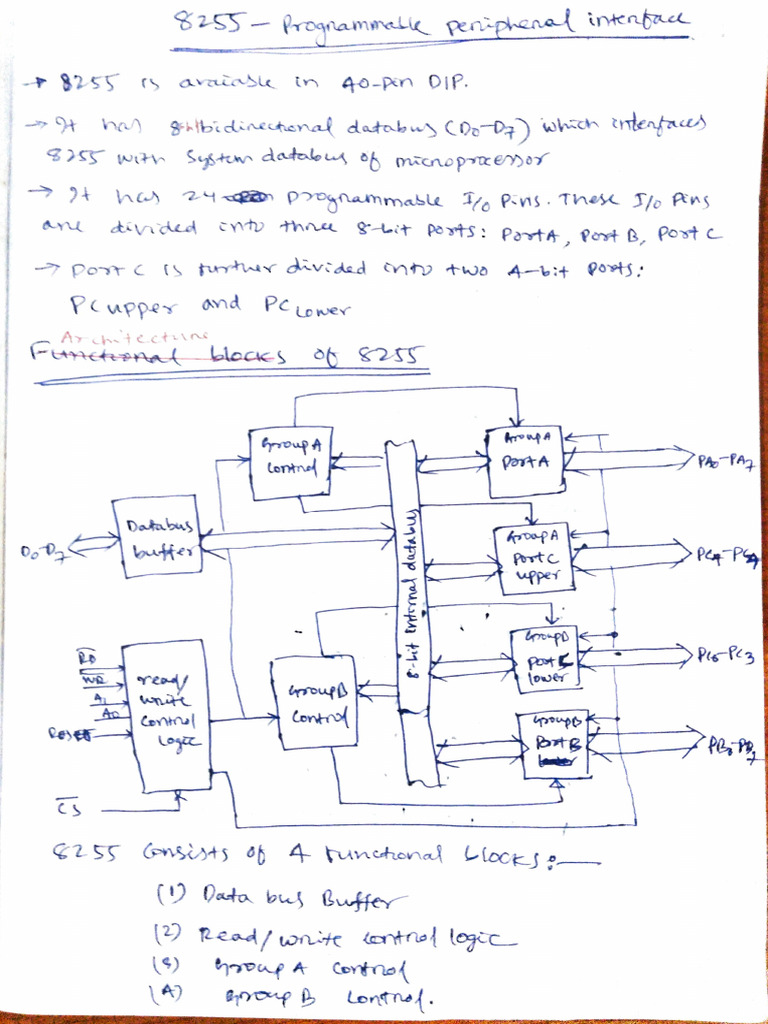 8255 - Programmable peripheral interface
→ 8255 is avaiable in 40-pin DIP.
→ It has 8-bit bidirectional databus (D0-D7) which interfaces
8255 with System databus of microprocessor
→ It has 24 programmable I/o Pins. These I/o Pins
are divided into three 8-bit ports: Port A, Port B, Port C
→ Port C is further divided into two 4-bit Ports:
PC upper and PC Lower
Architecture
Functional blocks of 8255
Group A
control
Group A
Port A
PA0-PA7
Databus
buffer
D0-D7
8-bit internal databus
Group A
Port C
upper
PC7-PC4
Group B
Port C
lower
PC0-PC3
R̅D̅
W̅R̅
A1
A0
Reset
C̅S̅
read/
write
control
logic
Group B
control
Group B
Port B
PB0-PB7
8255 consists of 4 functional blocks:—
(1) Data bus Buffer
(2) Read/write control logic
(3) Group A control
(4) Group B control.